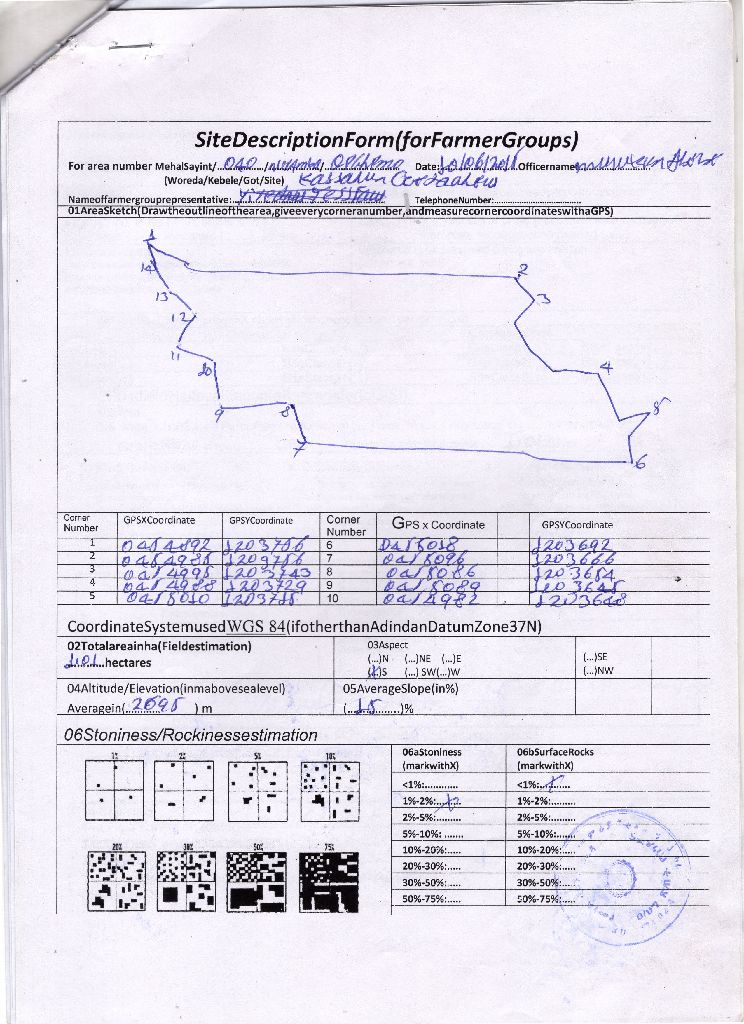 SiteDescriptionForm(forFarmerGroups)
For area number MehalSayint/ 020 / Date: 10/06/2011 Officername
(Woreda/Kebele/Got/Site) Kassahun
Nameoffarmergrouprepresentative: TelephoneNumber:
01AreaSketch(Drawtheoutlineofthearea,giveeverycorneranumber,andmeasurecornercoordinateswithaGPS)
1
14
2
13
3
12
11
10
4
9
8
5
7
6
Corner Number GPSXCoordinate GPSYCoordinate Corner Number GPS x Coordinate GPSYCoordinate
1 0454892 1203756 6 0455018 1203692
2 0454985 1203756 7 0455096 1203666
3 0454995 1203743 8 0455086 1203654
4 0454988 1203729 9 0455089 1203645
5 0455010 1203715 10 0454982 1203648
CoordinateSystemusedWGS 84(ifotherthanAdindanDatumZone37N)
02Totalareainha(Fieldestimation)
1.01 hectares
03Aspect
(...)N (...)NE (...)E (...)SE
(X)S (...) SW(...)W (...)NW
04Altitude/Elevation(inmabovesealevel)
Averagein( 2595 ) m
05AverageSlope(in%)
( 15 )%
06Stoniness/Rockinessestimation
1% 2% 5% 10%
20% 30% 50% 75%
06aStoniness (markwithX) 06bSurfaceRocks (markwithX)
<1%:............ <1%: X
1%-2%: X 1%-2%:.........
2%-5%:......... 2%-5%:.........
5%-10%: ....... 5%-10%:.......
10%-20%:..... 10%-20%:.....
20%-30%:..... 20%-30%:.....
30%-50%:..... 30%-50%:.....
50%-75%:..... 50%-75%:.....